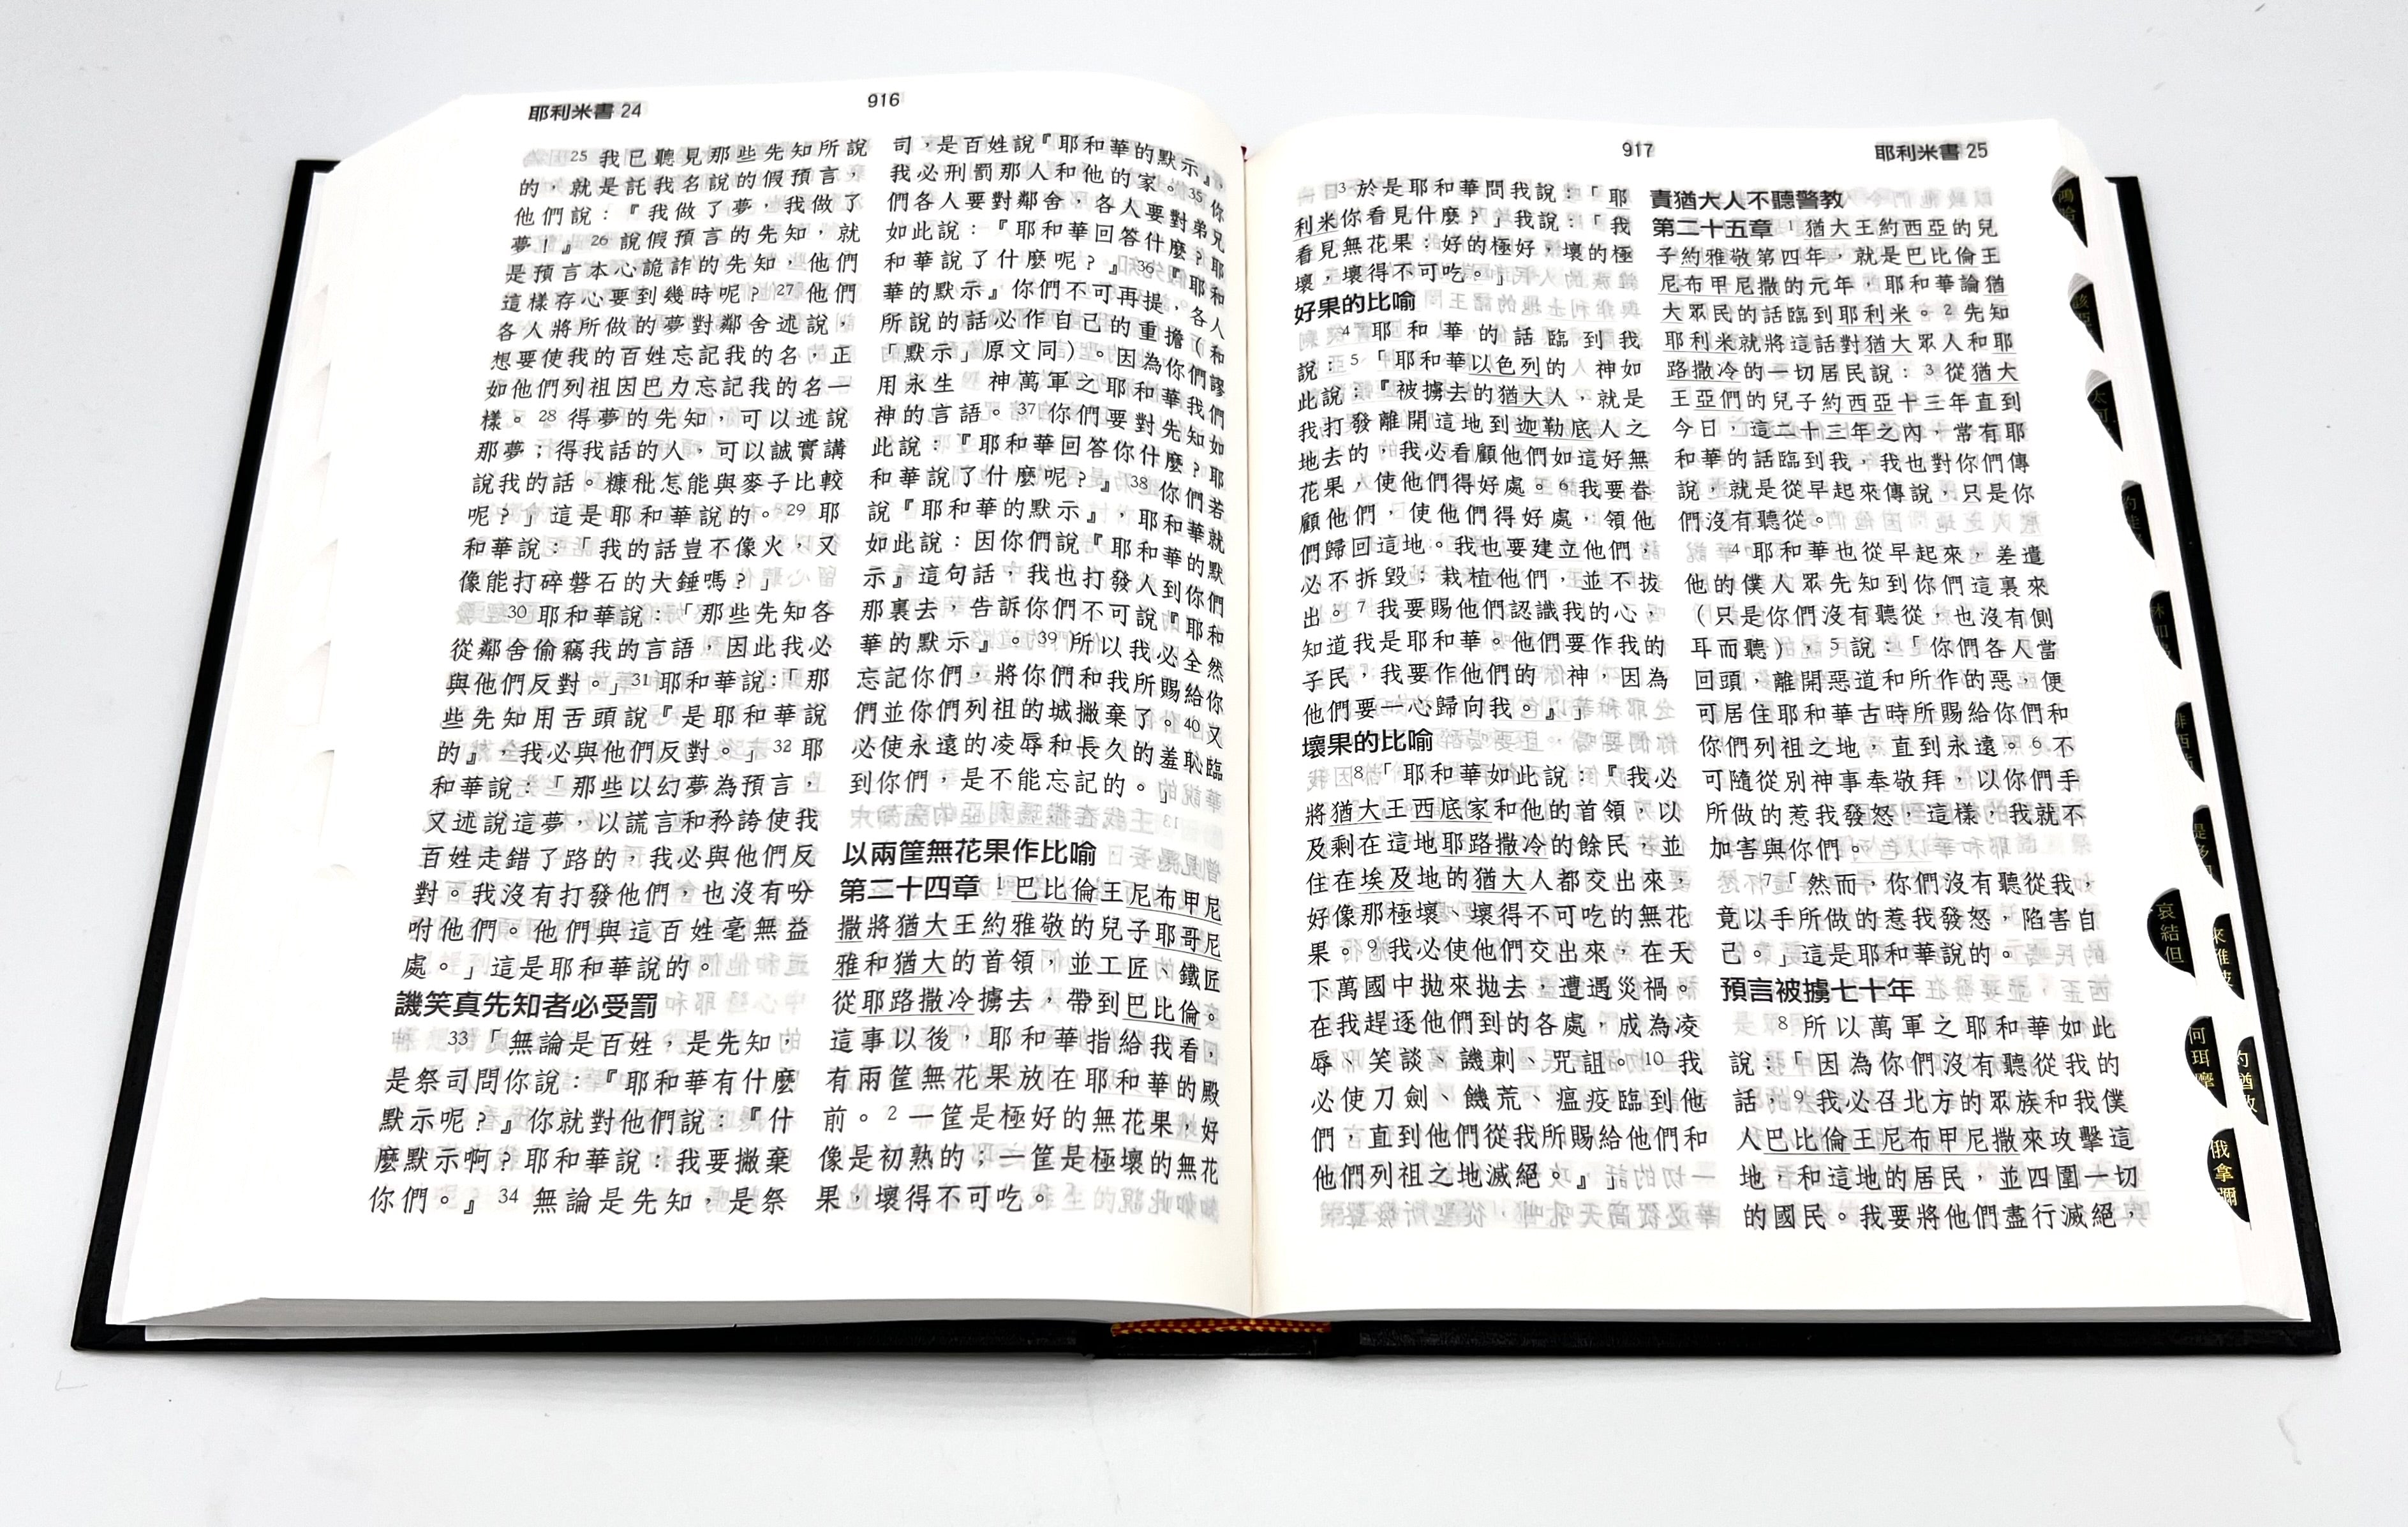 耶利米書 24
916
25 我已聽見那些先知所說
的，就是託我名說的假預言，
他們說：『我做了夢，我做了
夢！』26 說假預言的先知，就
是預言本心詭詐的先知，他們
這樣存心要到幾時呢？27 他們
各人將所做的夢對鄰舍述說，
想要使我的百姓忘記我的名，正
如他們列祖因巴力忘記我的名一
樣。28 得夢的先知，可以述說
那夢；得我話的人，可以誠實講
說我的話。糠秕怎能與麥子比較
呢？」這是耶和華說的。29 耶
和華說：「我的話豈不像火，又
像能打碎磐石的大錘嗎？」
30 耶和華說：「那些先知各
從鄰舍偷竊我的言語，因此我必
與他們反對。」31 耶和華說：「那
些先知用舌頭說『是耶和華說
的』，我必與他們反對。」32 耶
和華說：「那些以幻夢為預言，
又述說這夢，以謊言和矜誇使我
百姓走錯了路的，我必與他們反
對。我沒有打發他們，也沒有吩
咐他們。他們與這百姓毫無益
處。」這是耶和華說的。
譏笑真先知者必受罰
33 「無論是百姓，是先知，
是祭司問你說：『耶和華有什麼
默示呢？』你就對他們說：『什
麼默示啊？耶和華說：我要撇棄
你們。』34 無論是先知，是祭
司，是百姓說『耶和華的默示』，
我必刑罰那人和他的家。35 你
們各人要對鄰舍，各人要對弟兄
如此說：『耶和華回答什麼？耶
和華說了什麼呢？』36 『耶和
華的默示』你們不可再提，各人
所說的話必作自己的重擔（和
「默示」原文同）。因為你們謬
用永生　神萬軍之耶和華我們
神的言語。37 你們要對先知如
此說：『耶和華回答你什麼？耶
和華說了什麼呢？』38 你們若
說『耶和華的默示』，耶和華就
如此說：因你們說『耶和華的默
示』這句話，我也打發人到你們
那裏去，告訴你們不可說『耶和
華的默示』。39 所以我必全然
忘記你們，將你們和我所賜給你
們並你們列祖的城撇棄了。40 又
必使永遠的凌辱和長久的羞恥臨
到你們，是不能忘記的。」
以兩筐無花果作比喻
第二十四章 1 巴比倫王尼布甲尼
撒將猶大王約雅敬的兒子耶哥尼
雅和猶大的首領，並工匠、鐵匠
從耶路撒冷擄去，帶到巴比倫。
這事以後，耶和華指給我看，
有兩筐無花果放在耶和華的殿
前。2 一筐是極好的無花果，好
像是初熟的；一筐是極壞的無花
果，壞得不可吃。
917
耶利米書 25
3 於是耶和華問我說：「耶
利米你看見什麼？」我說：「我
看見無花果：好的極好，壞的極
壞，壞得不可吃。」
好果的比喻
4 耶和華的話臨到我
說：5 「耶和華以色列的　神如
此說：『被擄去的猶大人，就是
我打發離開這地到迦勒底人之
地去的，我必看顧他們如這好無
花果，使他們得好處。6 我要眷
顧他們，使他們得好處，領他
們歸回這地。我也要建立他們，
必不拆毀；栽植他們，並不拔
出。7 我要賜他們認識我的心，
知道我是耶和華。他們要作我的
子民，我要作他們的　神，因為
他們要一心歸向我。』」
壞果的比喻
8 「耶和華如此說：『我必
將猶大王西底家和他的首領，以
及剩在這地耶路撒冷的餘民，並
住在埃及地的猶大人都交出來，
好像那極壞、壞得不可吃的無花
果。9 我必使他們交出來，在天
下萬國中拋來拋去，遭遇災禍。
在我趕逐他們到的各處，成為凌
辱、笑談、譏刺、咒詛。10 我
必使刀劍、饑荒、瘟疫臨到他
們，直到他們從我所賜給他們和
他們列祖之地滅絕。』」
責猶大人不聽警教
第二十五章 1 猶大王約西亞的兒
子約雅敬第四年，就是巴比倫王
尼布甲尼撒的元年，耶和華論猶
大眾民的話臨到耶利米。2 先知
耶利米就將這話對猶大眾人和耶
路撒冷的一切居民說：3 從猶大
王亞們的兒子約西亞十三年直到
今日，這二十三年之內，常有耶
和華的話臨到我，我也對你們傳
說，就是從早起來傳說，只是你
們沒有聽從。
4 耶和華也從早起來，差遣
他的僕人眾先知到你們這裏來
（只是你們沒有聽從，也沒有側
耳而聽），5 說：「你們各人當
回頭，離開惡道和所作的惡，便
可居住耶和華古時所賜給你們和
你們列祖之地，直到永遠。6 不
可隨從別神事奉敬拜，以你們手
所做的惹我發怒，這樣，我就不
加害與你們。
7 「然而，你們沒有聽從我，
竟以手所做的惹我發怒，陷害自
己。」這是耶和華說的。
預言被擄七十年
8 所以萬軍之耶和華如此
說：「因為你們沒有聽從我的
話，9 我必召北方的眾族和我僕
人巴比倫王尼布甲尼撒來攻擊這
地，和這地的居民，並四圍一切
的國民。我要將他們盡行滅絕，
哀
結但
何珥摩
俄拿彌